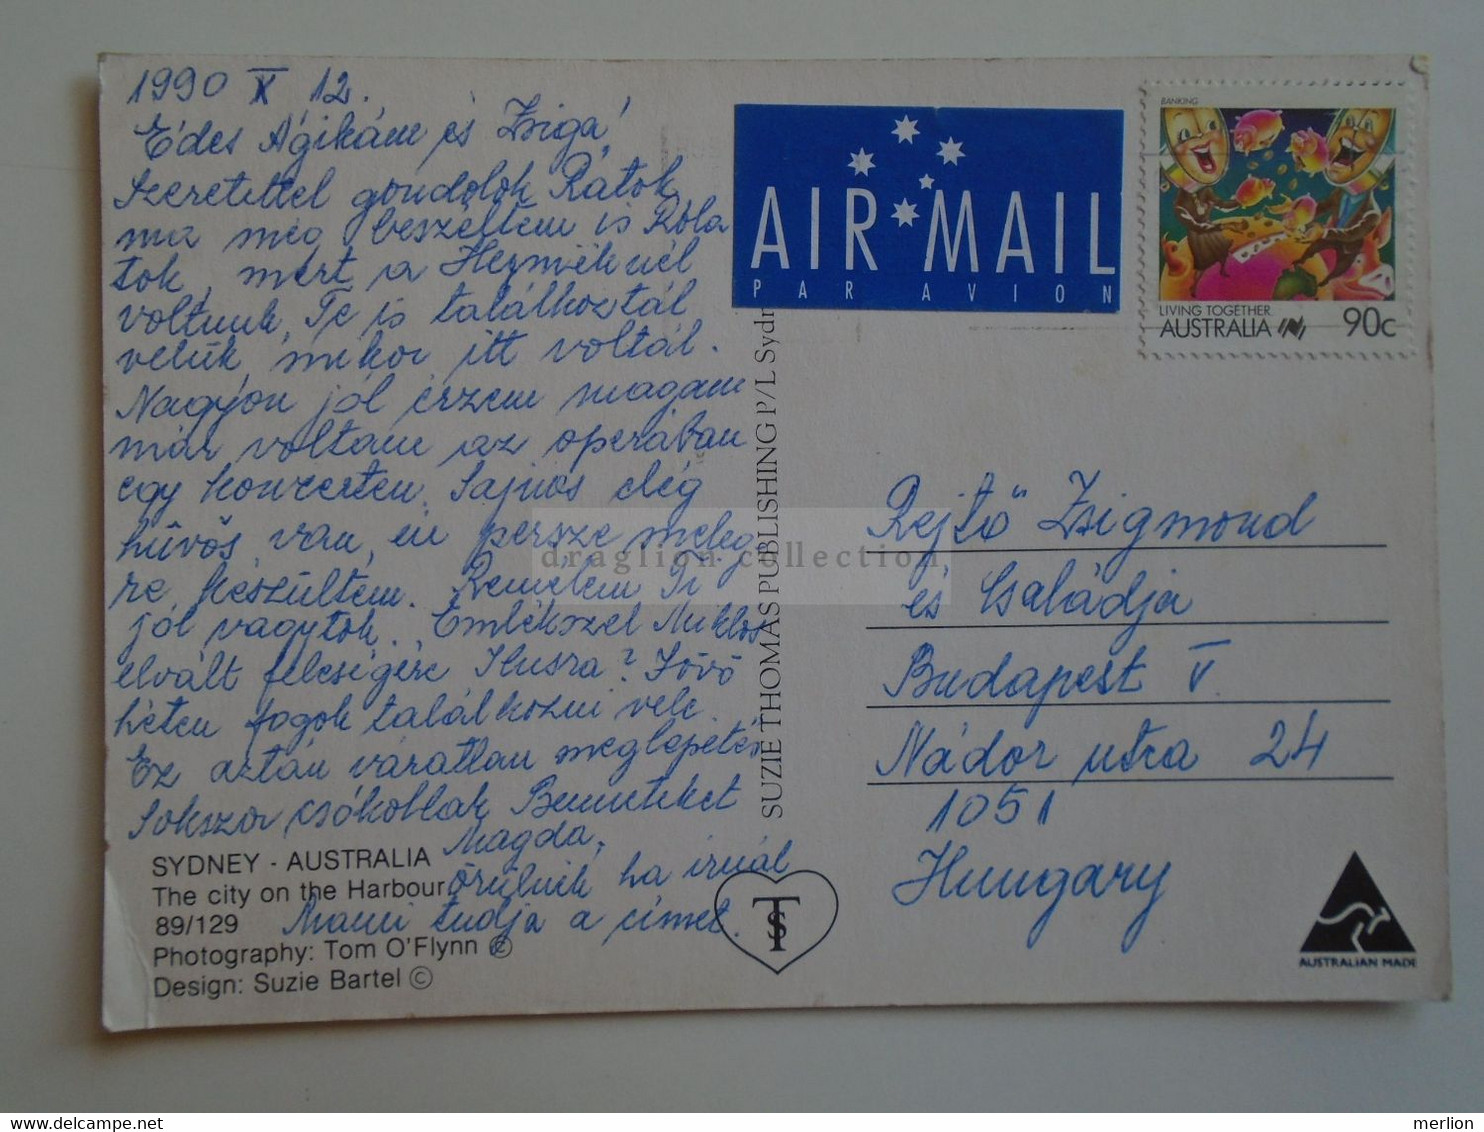 1990 X 12.
Édes Ágikám és Zsiga,
Szeretettel gondolok Rátok
ma meg beszéltem is Róla
tok, mert a
voltunk, Te is találkoztál
velük, mikor itt voltál.
Nagyon jól érzem magam
már voltam az operában
egy koncerten. Sajnos elég
hűvös van, én persze meleg
re készültem. Remélem Ti
jól vagytok. Emlékszel Miklós
elvált feleségére Ilusra? Jövő
héten fogok találkozni vele.
Ez aztán váratlan meglepetés
Sokszor csókollak Benneteket
Magda,
örülnék ha írnál
Mami tudja a címet.
SYDNEY - AUSTRALIA
The city on the Harbour
89/129
Photography: Tom O'Flynn ©
Design: Suzie Bartel ©
SUZIE THOMAS PUBLISHING P/L Sydn
TS
AIR MAIL
PAR AVION
BANKING
LIVING TOGETHER
AUSTRALIA 90c
Rejtő Zsigmond
és Családja
Budapest V.
Nádor utca 24
1051
Hungary
AUSTRALIAN MADE
draglion collection
delcampe.net
merlion